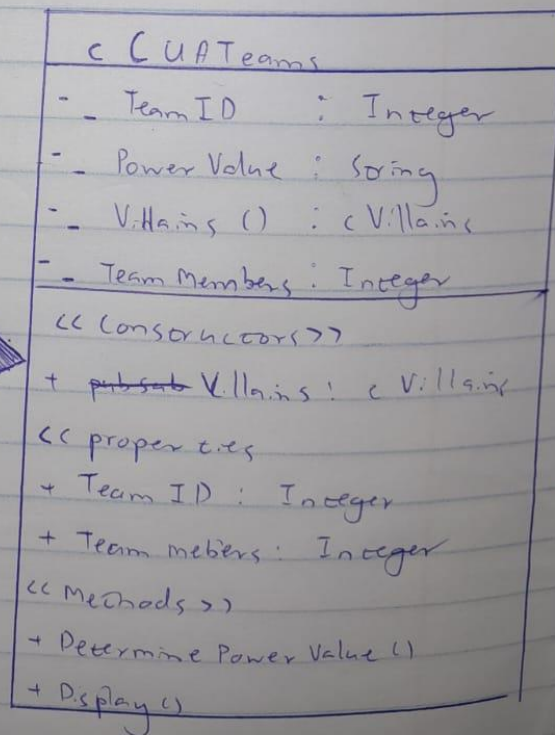 c CUATeams
- _ Team ID : Integer
- _ Power Value : String
- _ Villains () : c Villains
- _ Team Members : Integer
<< Constructors >>
+ pubsub Villains : c Villains
<< properties
+ Team ID : Integer
+ Team mebers : Integer
<< Methods >>
+ Determine Power Value ()
+ Display ()